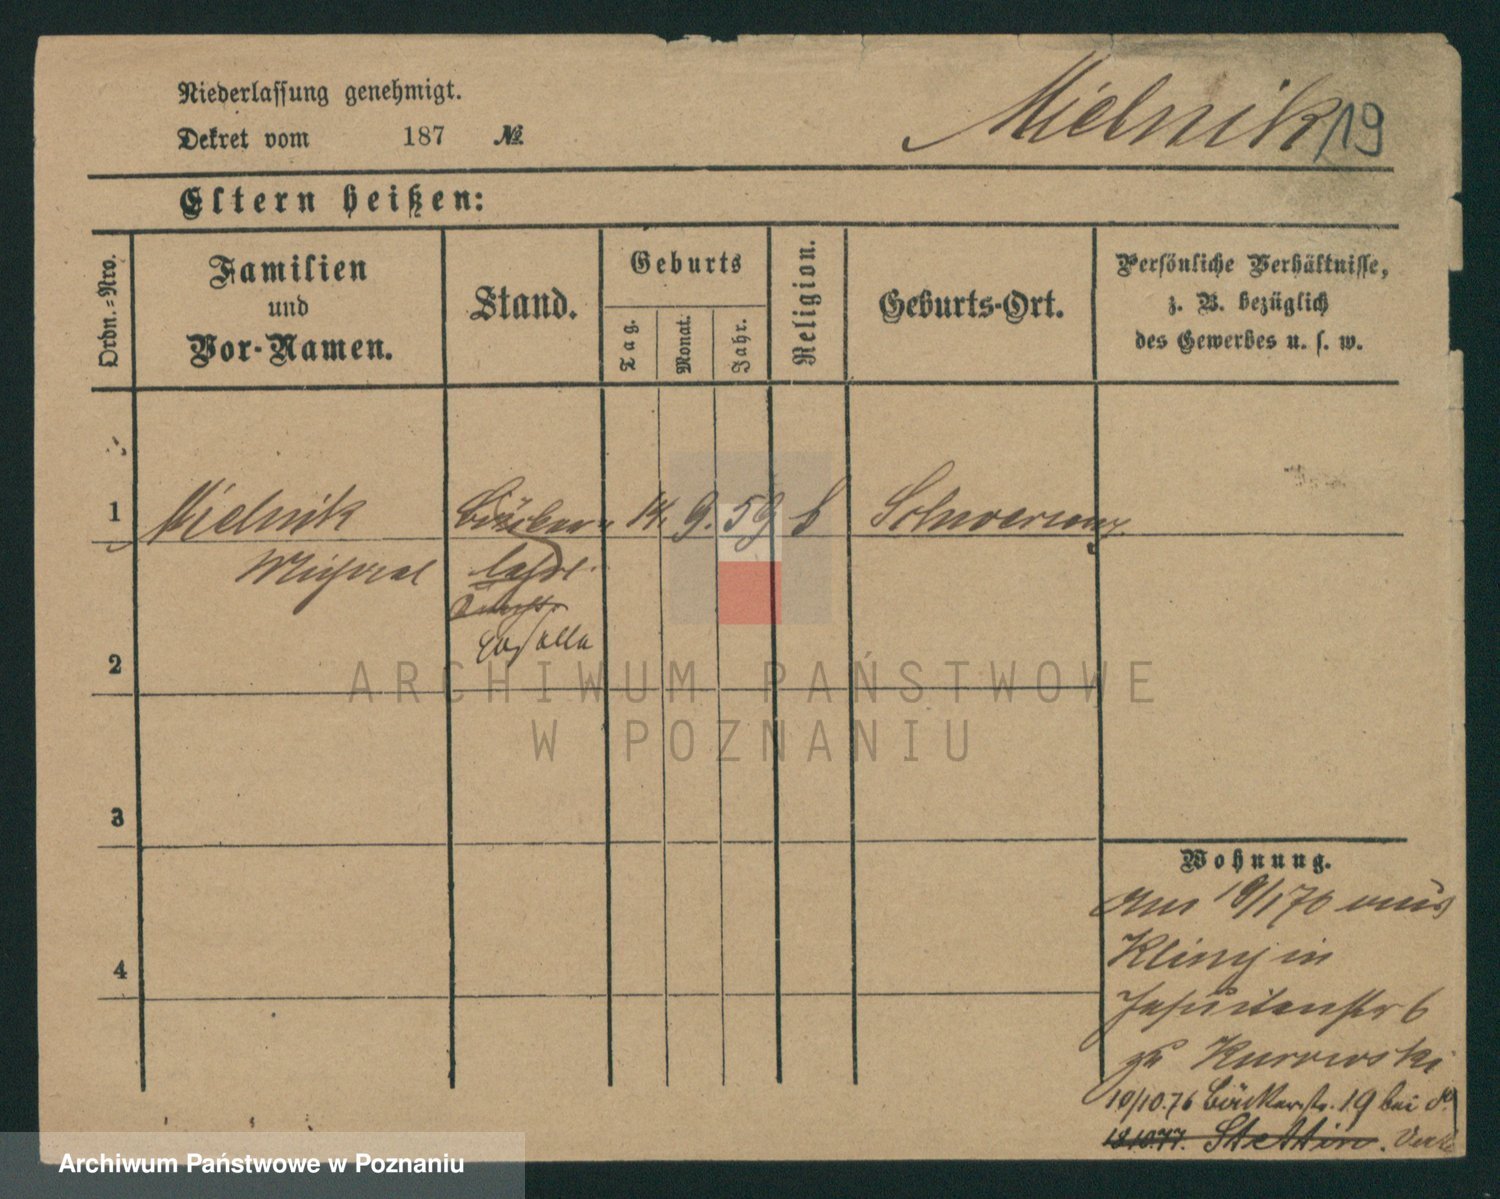 Niederlassung genehmigt.
Mielnik/19
Dekret vom 187 №
Eltern heißen:
Ordn.-Nro.
Familien
und
Vor-Namen.
Stand.
Geburts
Tag.
Monat.
Jahr.
Religion.
Geburts-Ort.
Persönliche Verhältnisse,
z. B. bezüglich
des Gewerbes u. s. w.
1 Mielnik Bäcker 14. 9. 59 Schwersenz
Michael
2
3
4
Wohnung.
Am 19/1 76 aus
Kling in
Jesuitenstr 6
zu Kurowski
10/10.76 Bäckerstr. 19 bei
18.10.77. Stettin.
ARCHIWUM PAŃSTWOWE
W POZNANIU
Archiwum Państwowe w Poznaniu